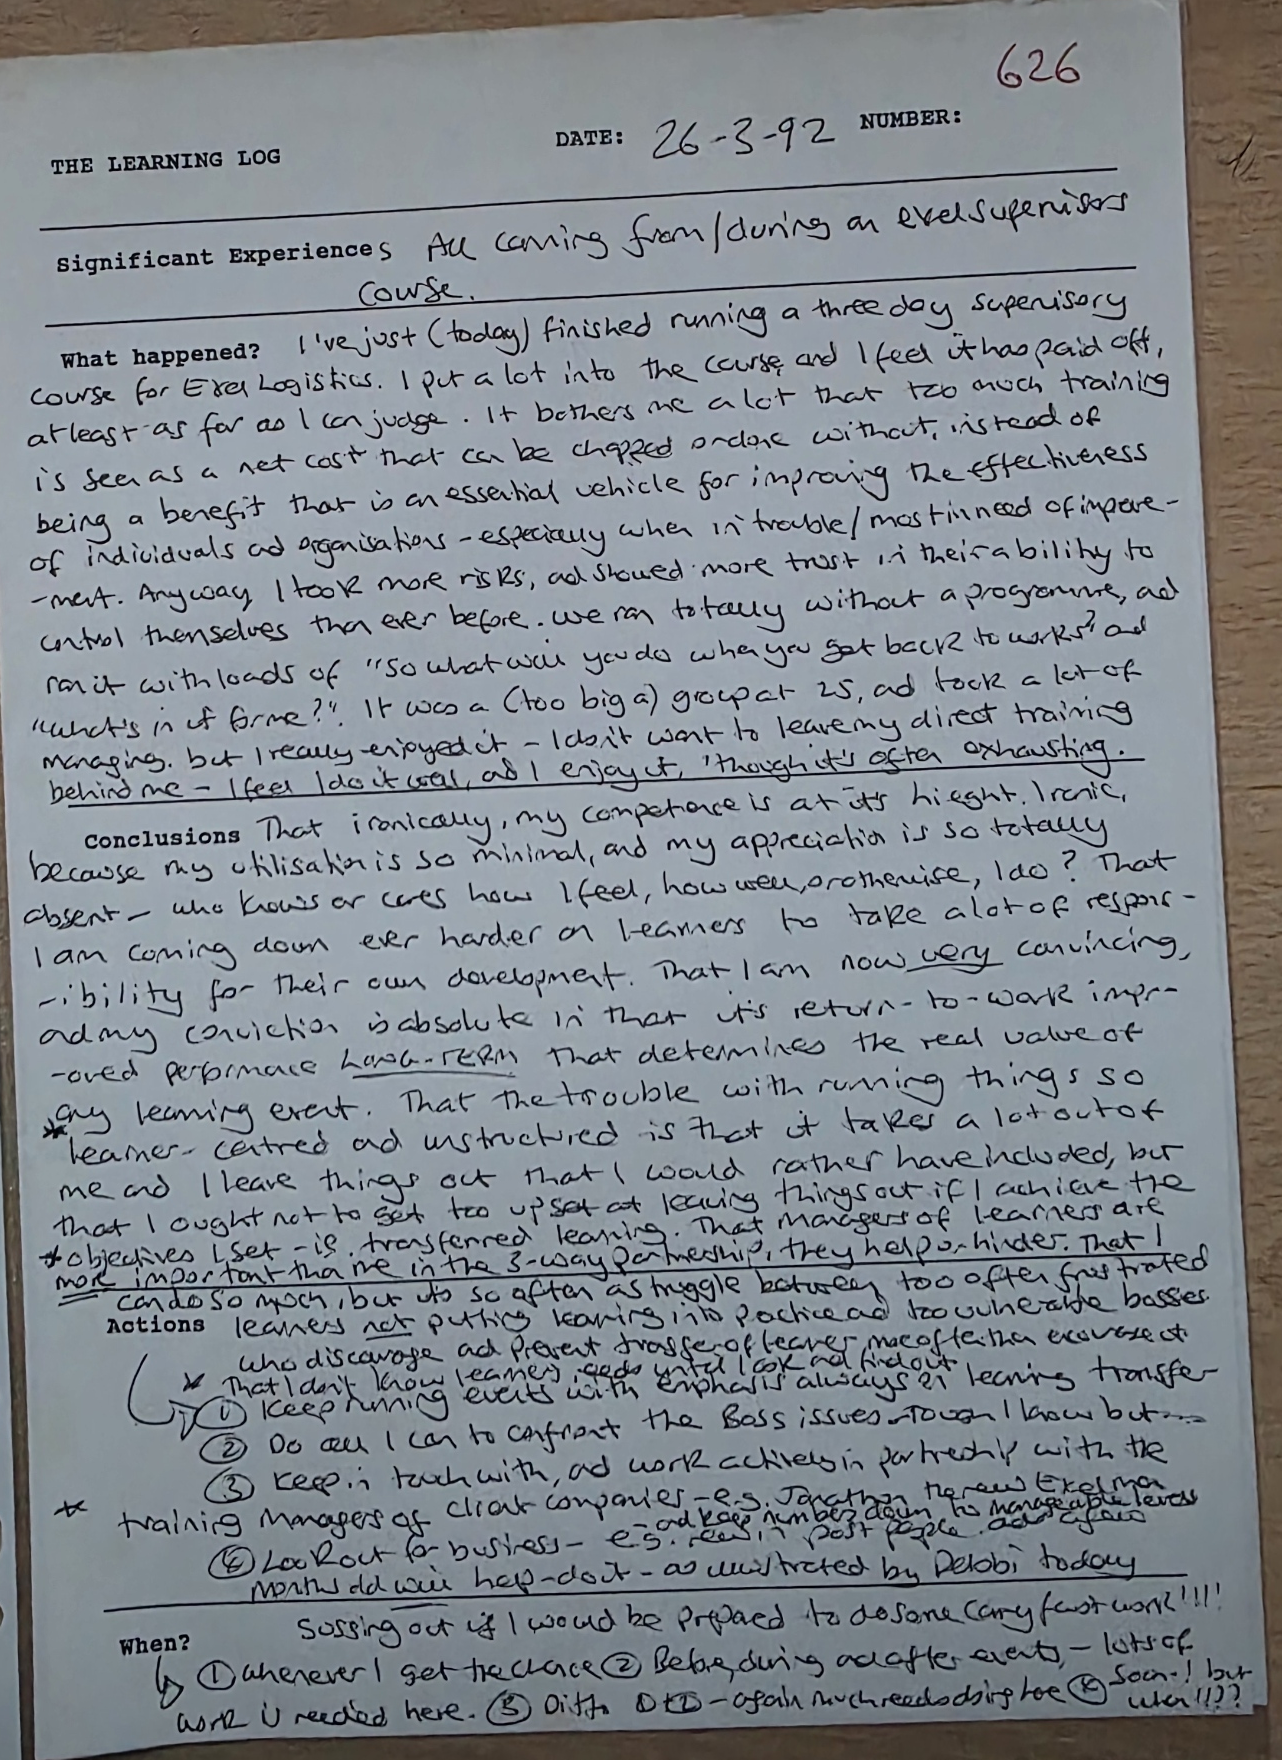 626
THE LEARNING LOG DATE: 26-3-92 NUMBER:
Significant Experiences All coming from/during an exel supervisors
course.
What happened? I've just (today) finished running a three day supervisory
course for Exel Logistics. I put a lot into the course and I feel it has paid off,
at least as far as I can judge. It bothers me a lot that too much training
is seen as a net cost that can be chopped or done without, instead of
being a benefit that is an essential vehicle for improving the effectiveness
of individuals ad organisations - especially when in trouble/most in need of improve-
-ment. Anyway, I took more risks, ad showed more trust in their ability to
control themselves than ever before. We ran totally without a programme, ad
ran it with loads of "So what will you do when you get back to works? and
"what's in it for me?". It was a (too big a) group at 25, ad took a lot of
managing. but I really enjoyed it - I don't want to leave my direct training
behind me - I feel I do it well, ad I enjoy it, 'though it's often exhausting.
Conclusions That ironically, my competence is at it's hieght. Ironic,
because my utilisation is so minimal, and my appreciation is so totally
absent - who knows or cares how I feel, how well, or otherwise, I do? That
I am coming down ever harder on learners to take a lot of respons-
-ibility for their own development. That I am now very convincing,
ad my conviction is absolute in that it's return-to-work impr-
-oved performance LONG-TERM that determines the real value of
* any learning event. That the trouble with running things so
learner-centred ad unstructured is that it takes a lot out of
me and I leave things out that I would rather have included, but
that I ought not to get too upset at leaving things out if I achieve the
* objectives I set - ie. transferred learning. That managers of learners are
more important than me in the 3-way partnership, they help or hinder. That I
can do so much, but its so often a struggle between too often frustrated
Actions learners not putting learning into practice ad too vulnerable bosses
who discourage ad prevent transfer of more often than encourage it
* That I don't know learners needs until I look ad find out
① Keep running events with emphasis always on learning transfer
② Do all I can to confront the Boss issues - Tough I know but....
③ Keep in touch with, ad work actively in partnership with the
* training managers of client companies - e.g. Jonathan the new Exel man
- ad keep numbers down to manageable levels
④ Look out for business - e.g. in post people
months old will help - do it - as illustrated by Debbi today
When? Sussing out if I would be prepared to do some Carry fast work!!!!
① Whenever I get the chance ② Before, during ad after events, - lots of
work is needed here. ③ Ditto ① + ② - again much needs doing here ④ Soon-! but
when!!??